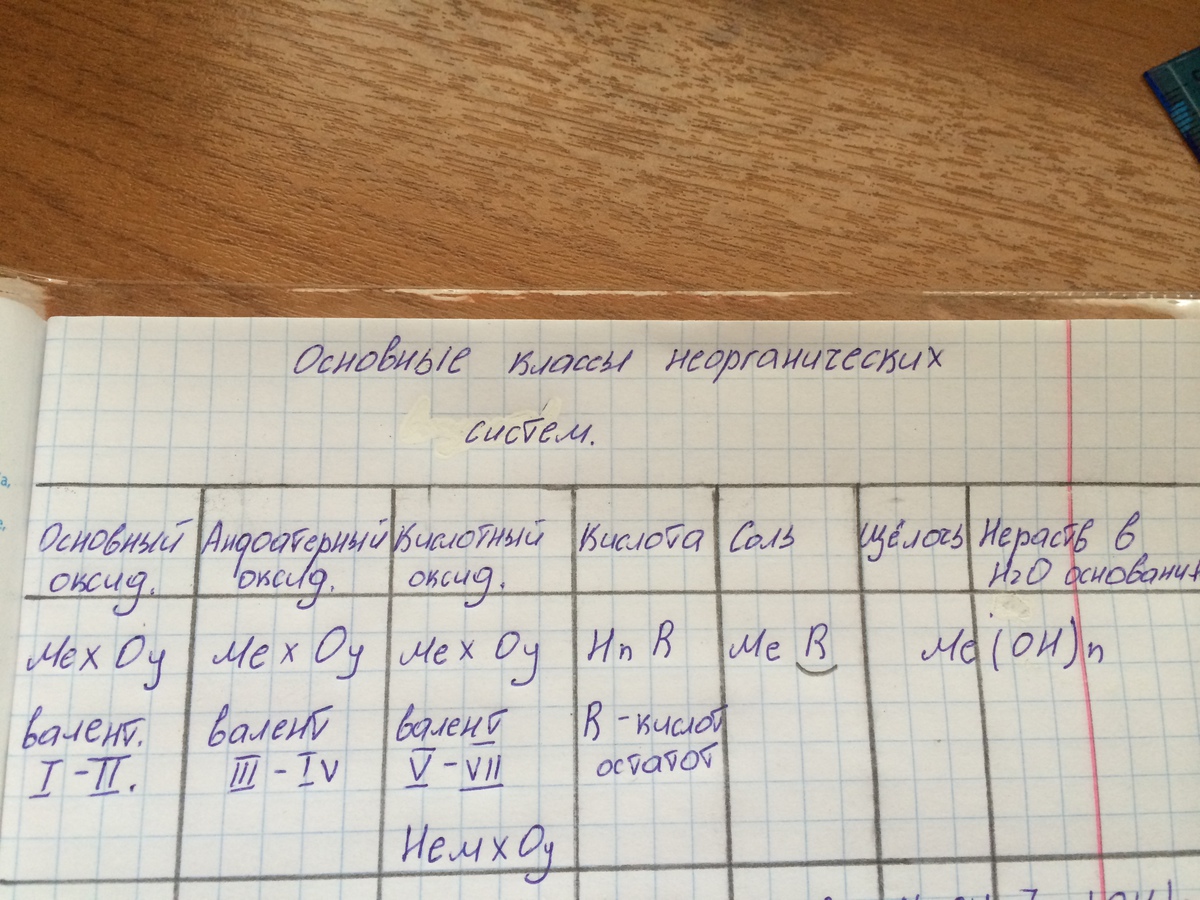 Основные классы неорганических
систем.
Основный оксид.
Андоатерный оксид.
Кислотный оксид.
Кислота
Соль
Щёлочь
Нераств в H2O основани
Mex Oy
Me x Oy
Mex Oy
Hn R
Me R
Me (OH)n
валент.
I - II.
валент
III - IV
валент
V - VII
R - кислот
остатот
Нем x Oy